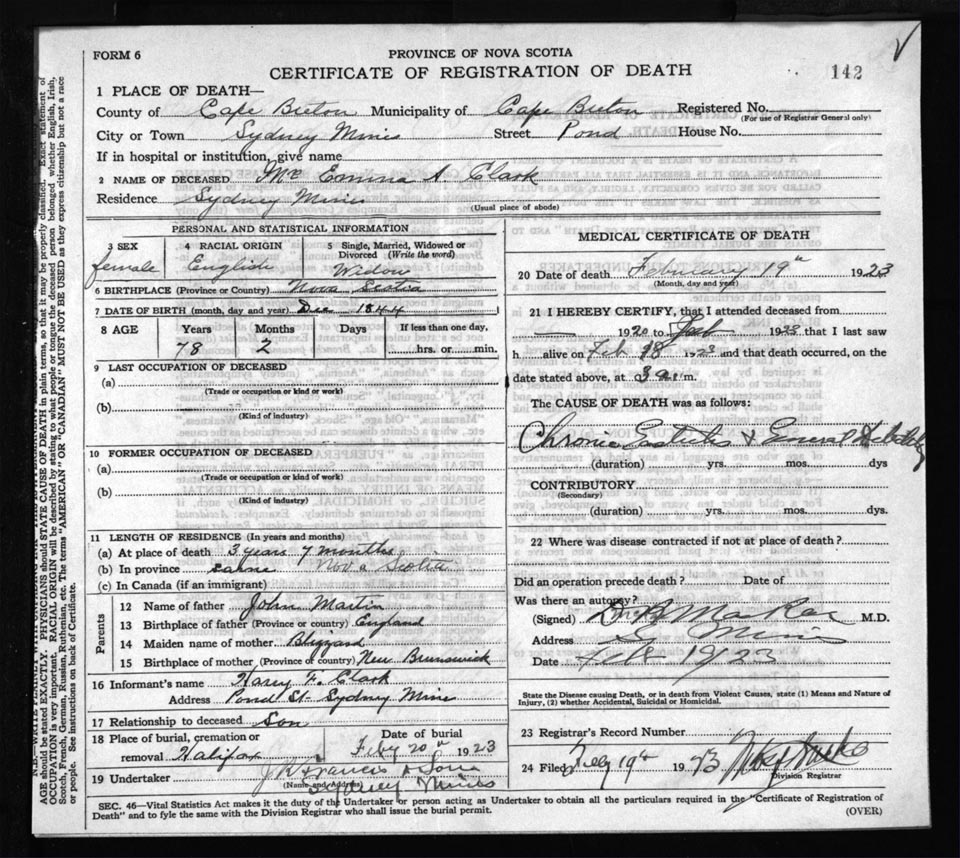 FORM 6
PROVINCE OF NOVA SCOTIA
CERTIFICATE OF REGISTRATION OF DEATH
142
1 PLACE OF DEATH—
County of Cape Breton Municipality of Cape Breton Registered No.
(For use of Registrar General only)
City or Town Sydney Mines Street Pond House No.
If in hospital or institution, give name
2 NAME OF DECEASED Mrs Emma A. Clark
Residence Sydney Mines
(Usual place of abode)
PERSONAL AND STATISTICAL INFORMATION
3 SEX 4 RACIAL ORIGIN 5 Single, Married, Widowed or Divorced (Write the word)
female English Widow
6 BIRTHPLACE (Province or Country) Nova Scotia
7 DATE OF BIRTH (month, day and year) Dec 1844
8 AGE Years Months Days If less than one day,
78 2 hrs. or min.
9 LAST OCCUPATION OF DECEASED
(a)
(Trade or occupation or kind of work)
(b)
(Kind of industry)
10 FORMER OCCUPATION OF DECEASED
(a)
(Trade or occupation or kind of work)
(b)
(Kind of industry)
11 LENGTH OF RESIDENCE (In years and months)
(a) At place of death 3 years 7 months
(b) In province Nova Scotia
(c) In Canada (if an immigrant)
Parents
12 Name of father John Martin
13 Birthplace of father (Province or country) England
14 Maiden name of mother Blizzard
15 Birthplace of mother (Province or country) New Brunswick
16 Informant's name Harry F. Clark
Address Pond St. Sydney Mines
17 Relationship to deceased Son
18 Place of burial, cremation or removal Halifax
Date of burial Feby 20th 1923
19 Undertaker J W Francis & Sons
(Name and Address) Sydney Mines
MEDICAL CERTIFICATE OF DEATH
20 Date of death February 19th 1923
(Month, day and year)
21 I HEREBY CERTIFY, that I attended deceased from
1920 to Feb 1923 that I last saw
h alive on Feb 18 1923 and that death occurred, on the
date stated above, at 3 a.m.
The CAUSE OF DEATH was as follows:
Chronic & General Debility
(duration) yrs. mos. dys
CONTRIBUTORY
(Secondary)
(duration) yrs. mos. dys.
22 Where was disease contracted if not at place of death?
Did an operation precede death? Date of
Was there an autopsy?
(Signed) M.D.
Address Mines
Date Feb 1923
State the Disease causing Death, or in death from Violent Causes, state (1) Means and Nature of
Injury, (2) whether Accidental, Suicidal or Homicidal.
23 Registrar's Record Number
24 Filed Feby 19th 1923
Division Registrar
SEC. 46—Vital Statistics Act makes it the duty of the Undertaker or person acting as Undertaker to obtain all the particulars required in the "Certificate of Registration of
Death" and to fyle the same with the Division Registrar who shall issue the burial permit. (OVER)
AGE should be stated EXACTLY. PHYSICIANS should STATE CAUSE OF DEATH in plain terms, so that it may be properly classified. Exact statement of
OCCUPATION is very important. RACIAL ORIGIN will be described by stating to what people or tongue the deceased person belonged whether English, Irish,
Scotch, French, German, Russian, Ruthenian, etc. The terms "AMERICAN" OR "CANADIAN" MUST NOT BE USED as they express citizenship but not a race
or people. See instructions on back of Certificate.